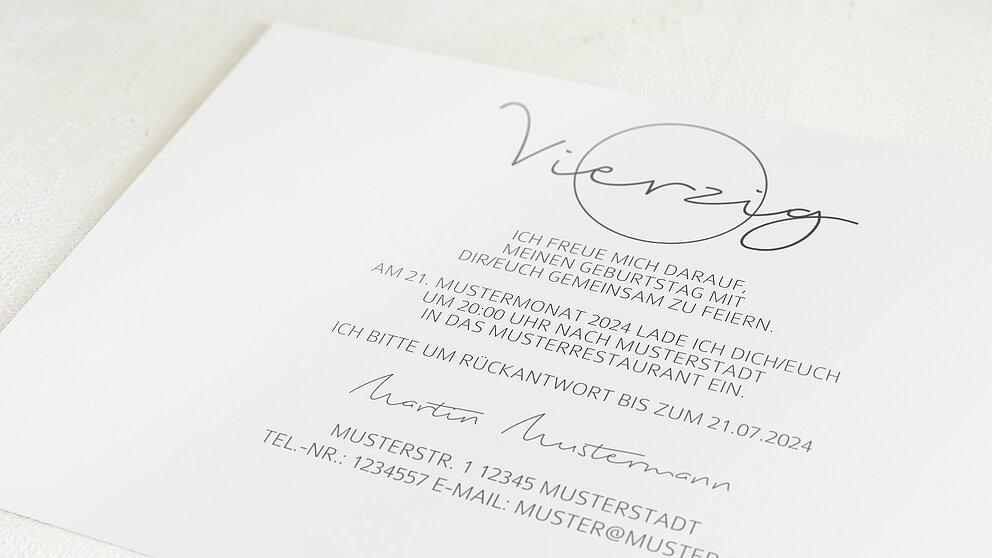 Vierzig
ICH FREUE MICH DARAUF,
MEINEN GEBURTSTAG MIT
DIR/EUCH GEMEINSAM ZU FEIERN.
AM 21. MUSTERMONAT 2024 LADE ICH DICH/EUCH
UM 20:00 UHR NACH MUSTERSTADT
IN DAS MUSTERRESTAURANT EIN.
ICH BITTE UM RÜCKANTWORT BIS ZUM 21.07.2024
Martin Mustermann
MUSTERSTR. 1 12345 MUSTERSTADT
TEL.-NR.: 1234557 E-MAIL: MUSTER@MUSTER